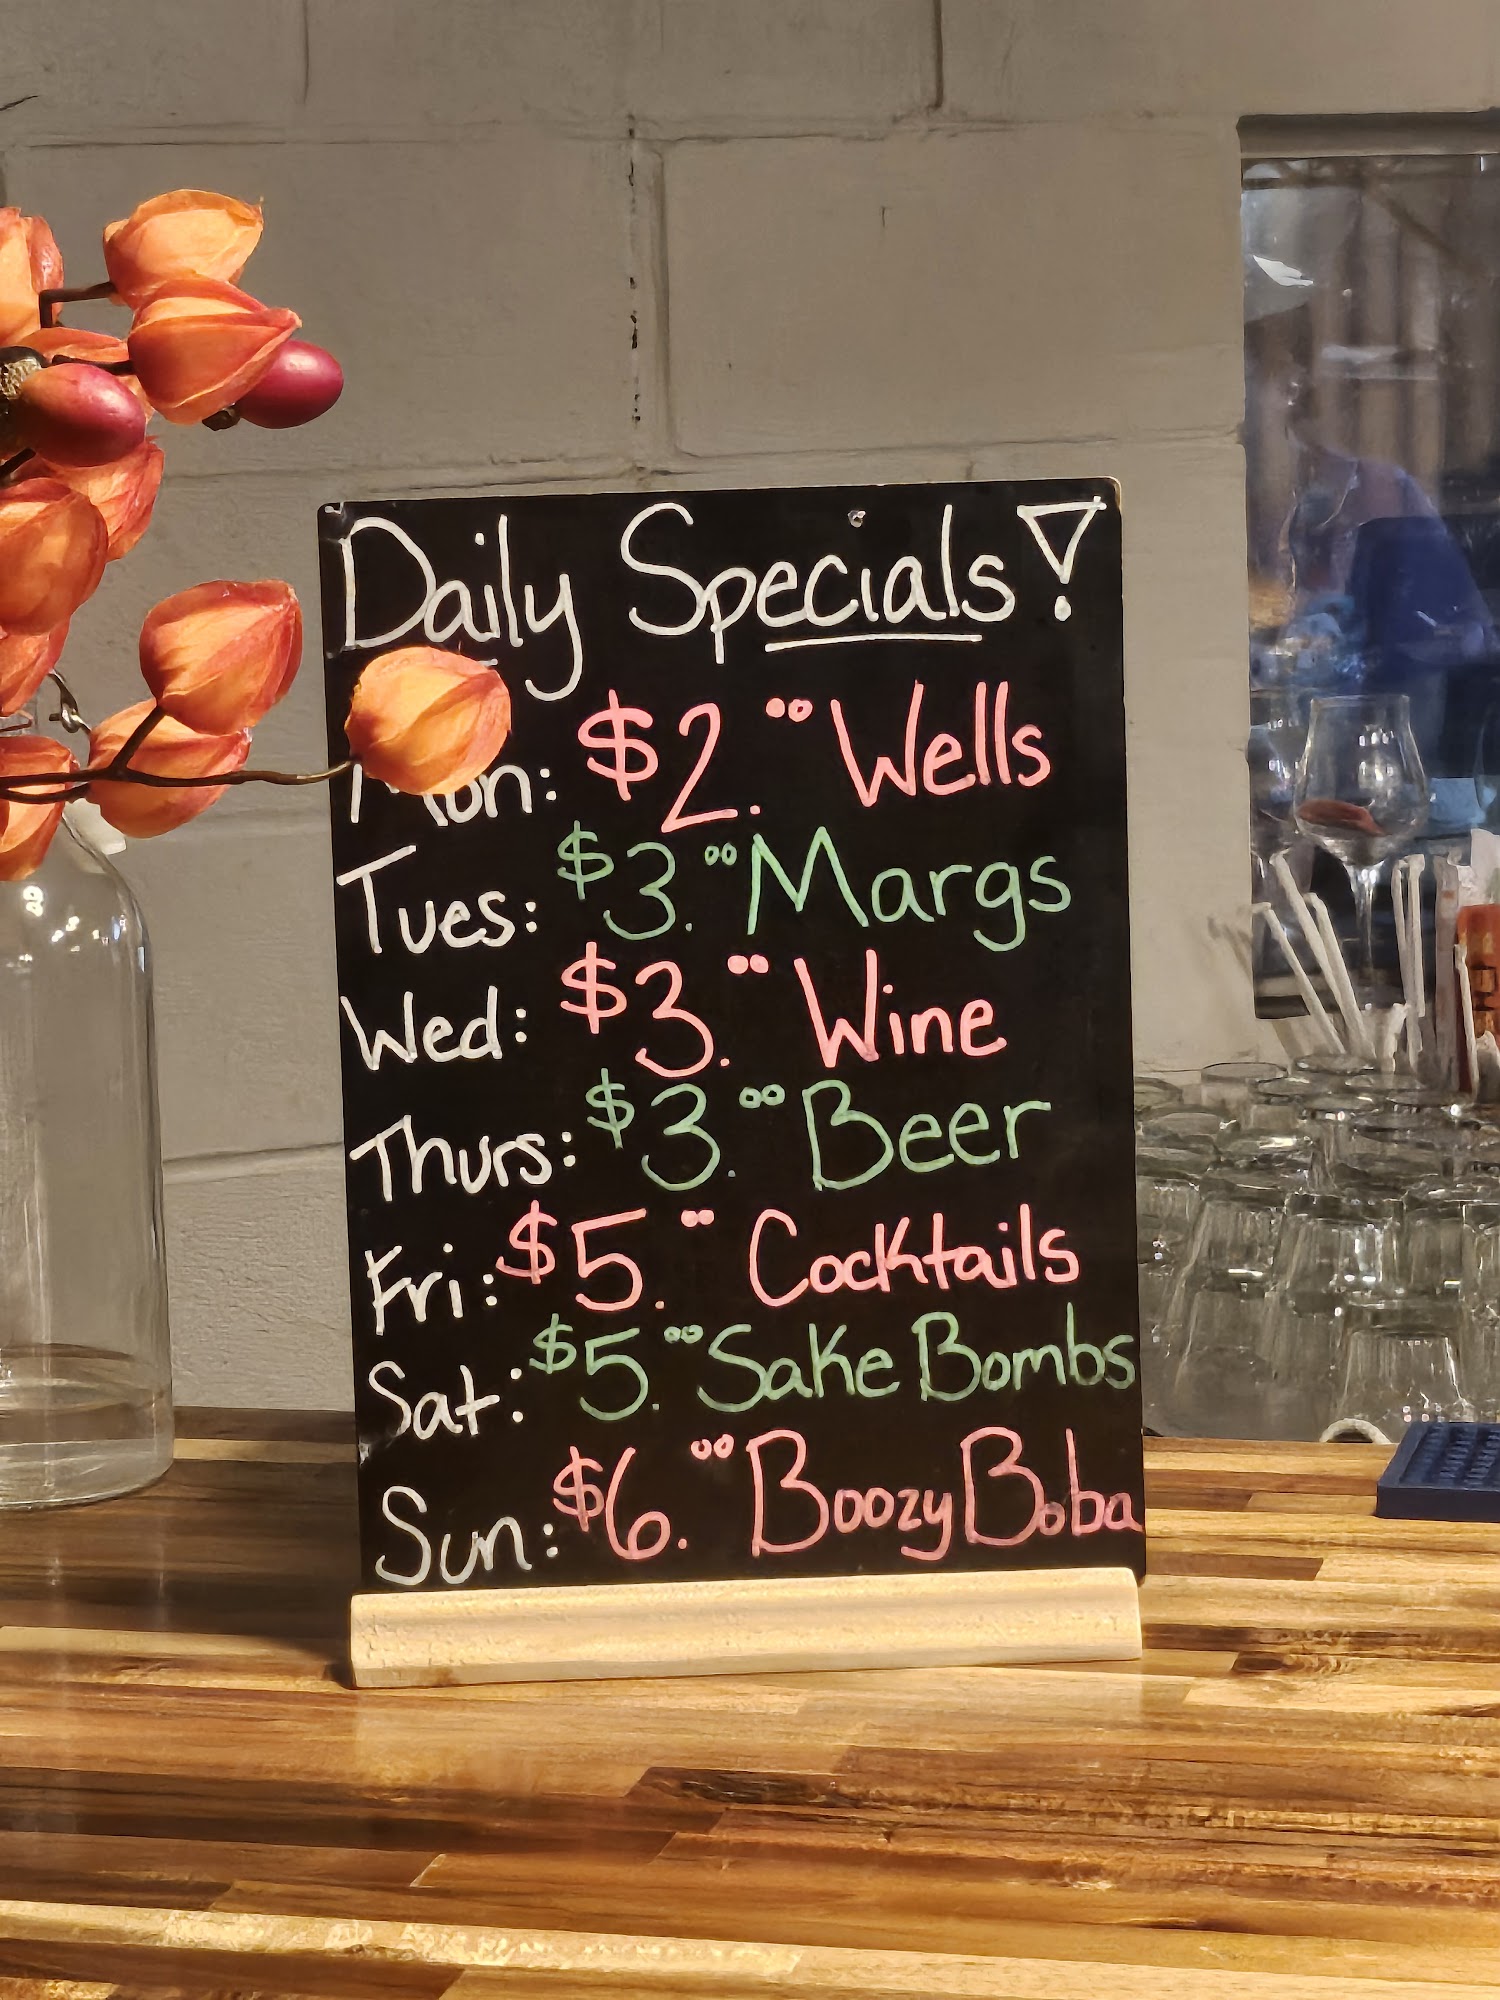 Daily Specials!
Mon: $2.00 Wells
Tues: $3.00 Margs
Wed: $3.00 Wine
Thurs: $3.00 Beer
Fri: $5.00 Cocktails
Sat: $5.00 Sake Bombs
Sun: $6.00 Boozy Boba